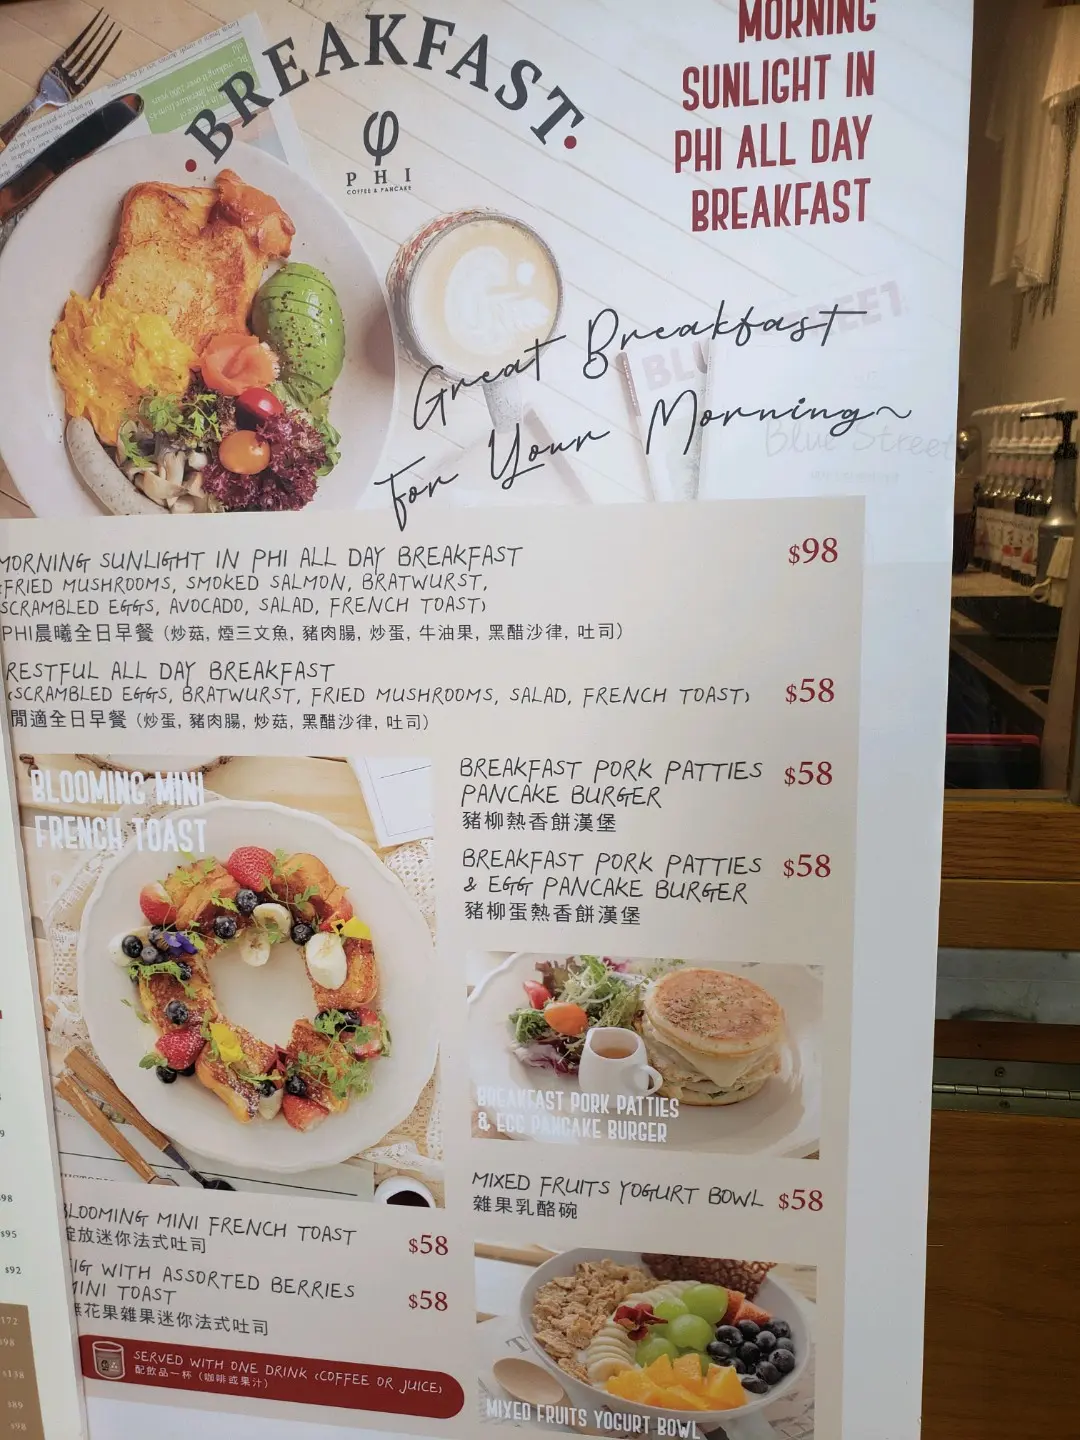 BREAKFAST
φ
PHI
COFFEE & PANCAKE
MORNING
SUNLIGHT IN
PHI ALL DAY
BREAKFAST
Great Breakfast
for Your Morning~
Blue Street
MORNING SUNLIGHT IN PHI ALL DAY BREAKFAST
(FRIED MUSHROOMS, SMOKED SALMON, BRATWURST,
SCRAMBLED EGGS, AVOCADO, SALAD, FRENCH TOAST)
$98
PHI晨曦全日早餐 (炒菇, 煙三文魚, 豬肉腸, 炒蛋, 牛油果, 黑醋沙律, 吐司)
RESTFUL ALL DAY BREAKFAST
(SCRAMBLED EGGS, BRATWURST, FRIED MUSHROOMS, SALAD, FRENCH TOAST)
$58
閒適全日早餐 (炒蛋, 豬肉腸, 炒菇, 黑醋沙律, 吐司)
BLOOMING MINI
FRENCH TOAST
BREAKFAST PORK PATTIES
PANCAKE BURGER
$58
豬柳熱香餅漢堡
BREAKFAST PORK PATTIES
& EGG PANCAKE BURGER
$58
豬柳蛋熱香餅漢堡
BREAKFAST PORK PATTIES
& EGG PANCAKE BURGER
MIXED FRUITS YOGURT BOWL $58
雜果乳酪碗
MIXED FRUITS YOGURT BOWL
BLOOMING MINI FRENCH TOAST
$58
綻放迷你法式吐司
FIG WITH ASSORTED BERRIES
MINI TOAST
$58
無花果雜果迷你法式吐司
SERVED WITH ONE DRINK (COFFEE OR JUICE)
配飲品一杯 (咖啡或果汁)
$95
$92